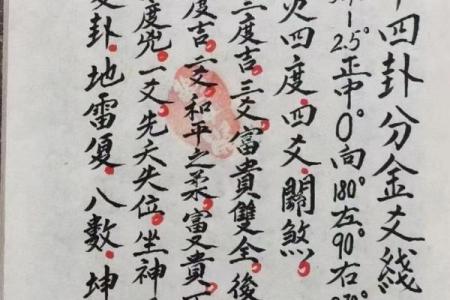 四卦分金爻綫
-2.5°正中0°向180°左90°右
四度。四爻。關煞。
三度吉。三爻富貴雙全。後
度吉。二爻。和平之柔。富又貴。
度兇。一爻。先夭失位。坐神
卦。地雷復。八數。坤